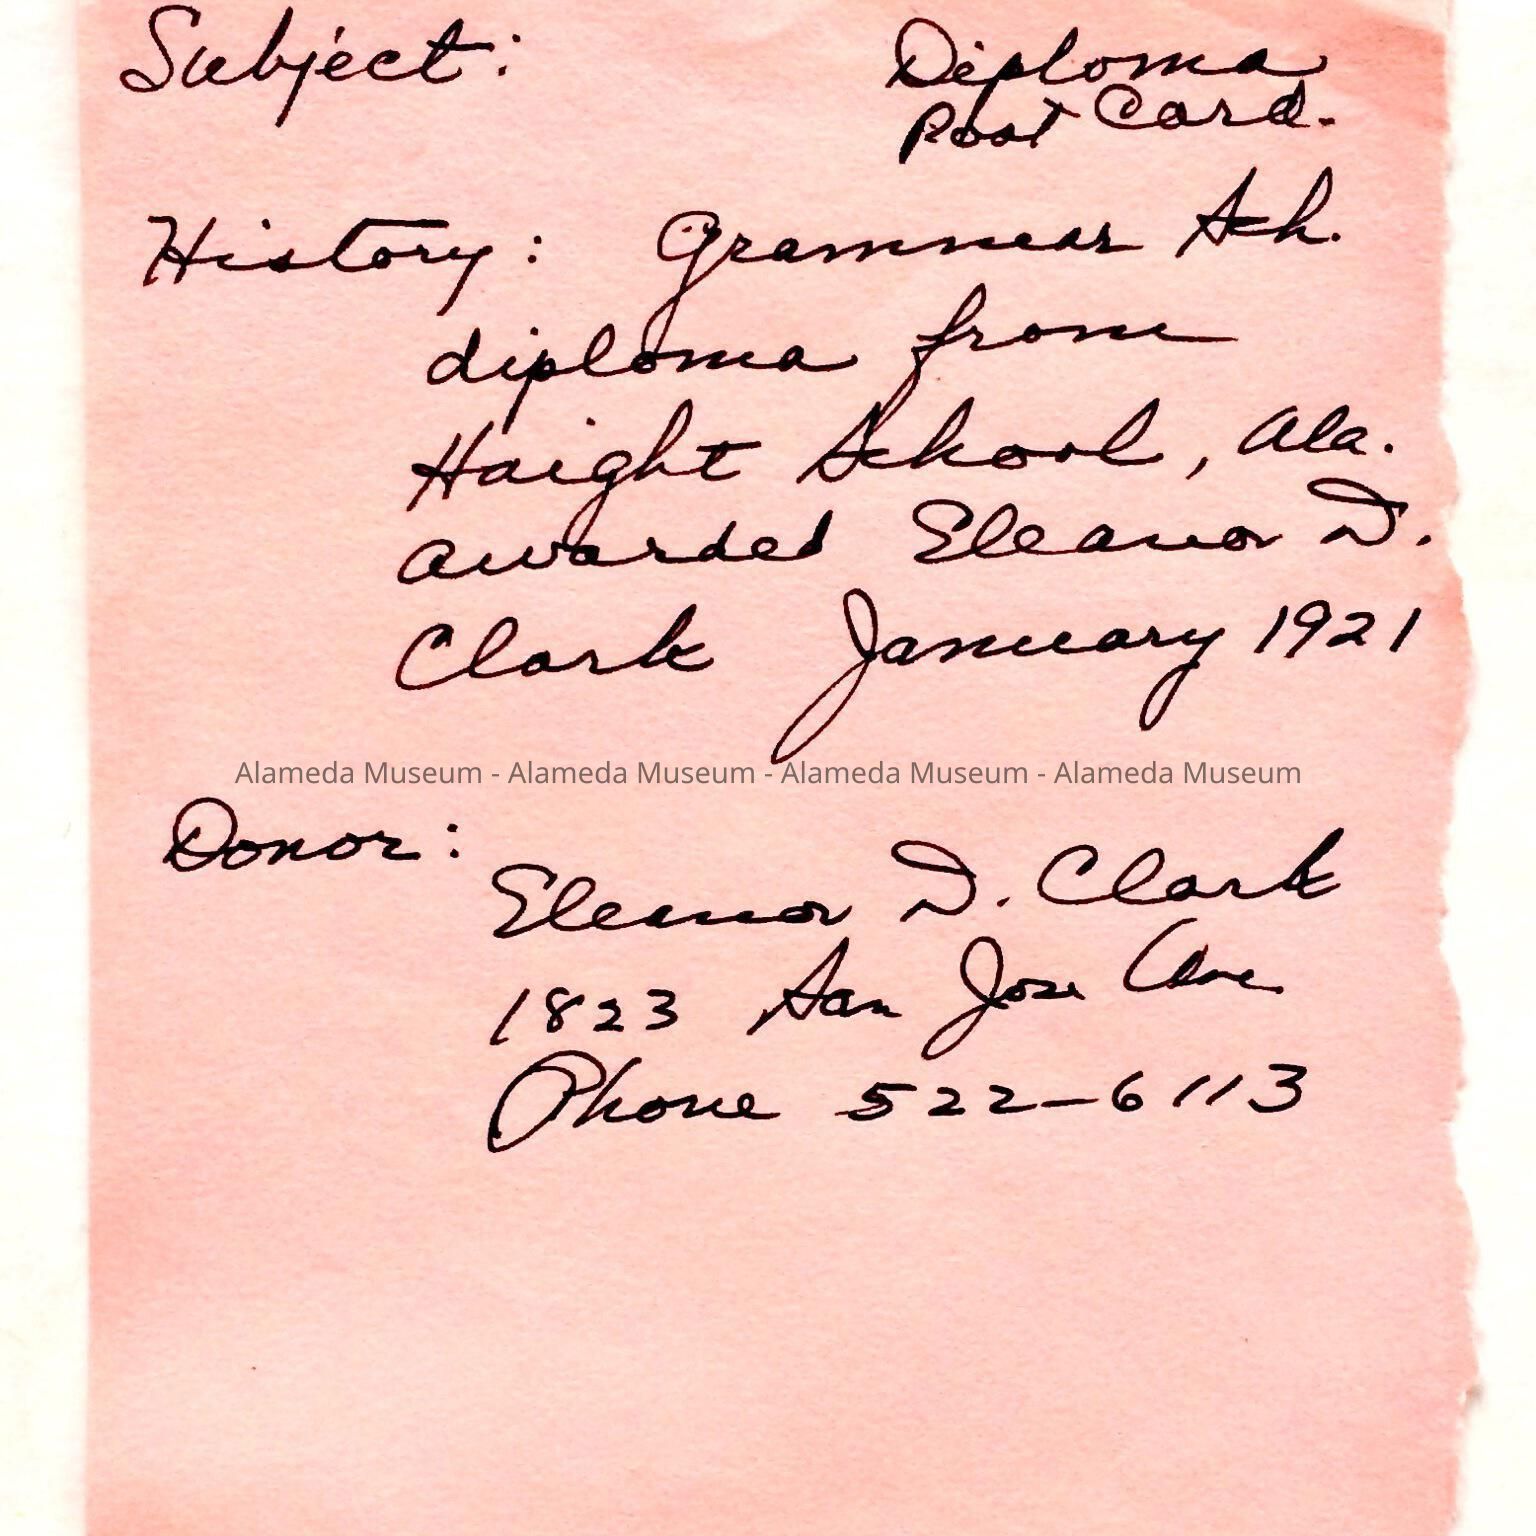 Subject: Diploma
Post Card.
History: Grammar Sch.
diploma from
Haight School, Ala.
awarded Eleanor D.
Clark January 1921
Alameda Museum - Alameda Museum - Alameda Museum - Alameda Museum
Donor:
Eleanor D. Clark
1823 San Jose Ave
Phone 522-6113